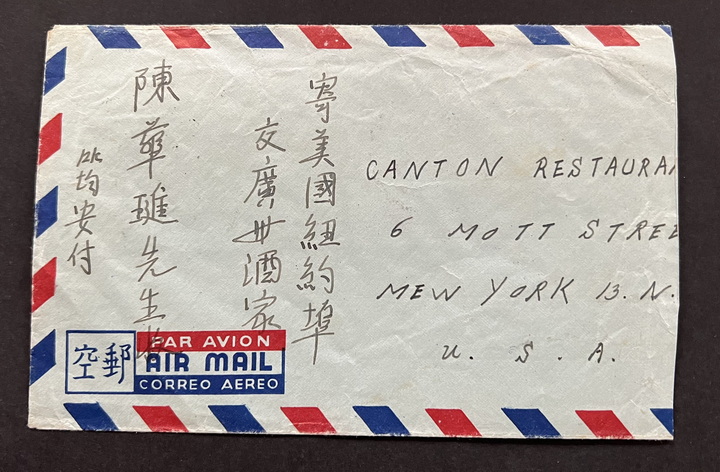 CANTON RESTAURAN
6 MOTT STREE
MEW YORK 13. N.
U. S. A.
寄美國紐約埠
交廣州酒家
陳華 先生收
均安付
空郵
PAR AVION
AIR MAIL
CORREO AEREO